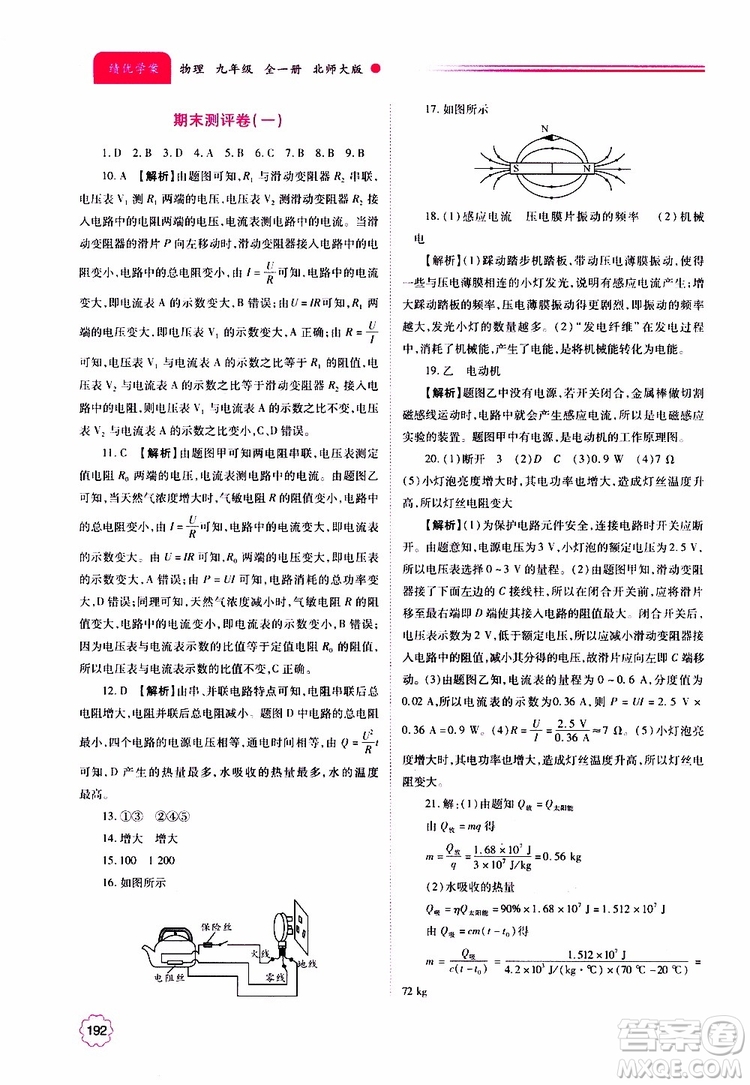 绩优学案 物理 九年级 全一册 北师大版
期末测评卷(一)
1.D 2.B 3.D 4.A 5.C 6.B 7.B 8.B 9.B
10.A 【解析】由题图可知,R₁与滑动变阻器 R₂ 串联,
电压表 V₁ 测 R₁ 两端的电压,电压表 V₂ 测滑动变阻器 R₂ 接
入电路中的电阻两端的电压,电流表测电路中的电流。当滑
动变阻器的滑片 P 向左移动时,滑动变阻器接入电路中的
电阻变小,电路中的总电阻变小,由 I = U/R 可知,电路中的电流
变大,即电流表 A 的示数变大,B 错误;由 U = IR 可知,R₁ 两
端的电压变大,即电压表 V₁ 的示数变大,A 正确;由 R = U/I
可知,电压表 V₁ 与电流表 A 的示数之比等于 R₁ 的阻值,电
压表 V₂ 与电流表 A 的示数之比等于滑动变阻器接入电路
中的电阻,则电压表 V₁ 与电流表 A 的示数之比不变,电压
表 V₂ 与电流表 A 的示数之比变小,C、D 错误。
11.C 【解析】由题图甲可知两电阻串联,电压表测定
值电阻 R₀ 两端的电压,电流表测电路中的电流。由题图乙
可知,当天然气浓度增大时,气敏电阻 R 的阻值变小,电路中
的总电阻变小,由 I = U/R 可知,电路中的电流变大,即电流表
的示数变大。由 U = IR 可知,R₀ 两端的电压变大,即电压表
的示数变大,A 错误;由 P = UI 可知,电路消耗的总功率变
大,B 错误;同理可知,天然气浓度减小时,气敏电阻 R 的阻值
变大,电路中的电流变小,电压表与电流表的示数均变小,
因为电压表与电流表示数的比值等于定值电阻 R₀ 的阻值,
所以电压表与电流表示数的比值不变,C 正确,D 错误。
12.D 【解析】由串、并联电路特点可知,串联后总电阻
增大,并联后总电阻减小。题图 D 为两电阻并联,总电阻
最小,四个电路的电源电压相等,通电时间相等,由 Q = U²/R t
可知,D 产生的热量最多,水吸收的热量最多,水的温度
最高。
13.①③ ②④⑤
14.增大 增大
15.100 1 200
16.如图所示
保险丝
火线
地线
零线
电阻丝
17.如图所示
N
S N
18.(1)感应电流 压电膜片振动的频率 (2)机械
电
【解析】(1)踩动踏步机踏板,带动压电薄膜振动,使得
一些与压电薄膜相连的小灯发光,说明有感应电流产生;增
大踩动踏板的频率,压电薄膜振动加剧,即振动的频率越
大,发光小灯的数量越多。(2)“发电纤维”在发电过程
中,消耗了机械能,产生了电能,是将机械能转化为电能。
19.乙 电动机
【解析】题图乙中没有电源,若开关闭合,金属棒做切割
磁感线运动时,电路中就会产生感应电流,所以是电磁感应
实验的装置。题图甲中有电源,是电动机的工作原理图。
20.(1)断开 3 (2)D C (3)0.9 W (4)7 Ω
(5)小灯泡亮度增大时,小灯泡的实际功率增大,灯丝温度升
高,所以灯丝电阻变大
【解析】(1)为保护电路元件安全,连接电路时开关应断
开。由题意知,电源电压为 3 V,小灯泡的额定电压为 2.5 V,
所以电压表选择 0~3 V 的量程。(2)由题图甲知,滑动变阻
器接了下面左边的 C 接线柱,闭合开关前,应将滑片
移至最右端即 D 端使其接入电路的阻值最大。闭合开关
后,电压表示数为2 V,低于额定电压,所以应减小滑动变阻器
接入电路中的阻值,以减小其分得的电压,故滑片应向 C 端移
动。(3)由题图乙知,电流表的量程为 0~0.6 A,分度值为
0.02 A,所以电流表的示数为0.36 A,则 P = UI = 2.5 V ×
0.36 A = 0.9 W。(4)R = U/I = 2.5 V/0.36 A ≈ 7 Ω。(5)小灯泡亮
度增大时,小灯泡的实际功率变大,灯丝温度升高,所以灯丝电
阻变大。
21.解:(1)由题知 Q放 = Q太阳能
由 Q放 = mq 得
m = Q放/q = 1.68 × 10⁷ J/3 × 10⁷ J/kg = 0.56 kg
(2)水吸收的热量
Q吸 = ηQ太阳能 = 90% × 1.68 × 10⁷ J = 1.512 × 10⁷ J
由 Q吸 = cm(t - t₀)得
m = Q吸/c(t - t₀) = 1.512 × 10⁷ J/4.2 × 10³ J/(kg · ℃) × (70 ℃ - 20 ℃) =
72 kg
192
答案圈
MXQE.COM